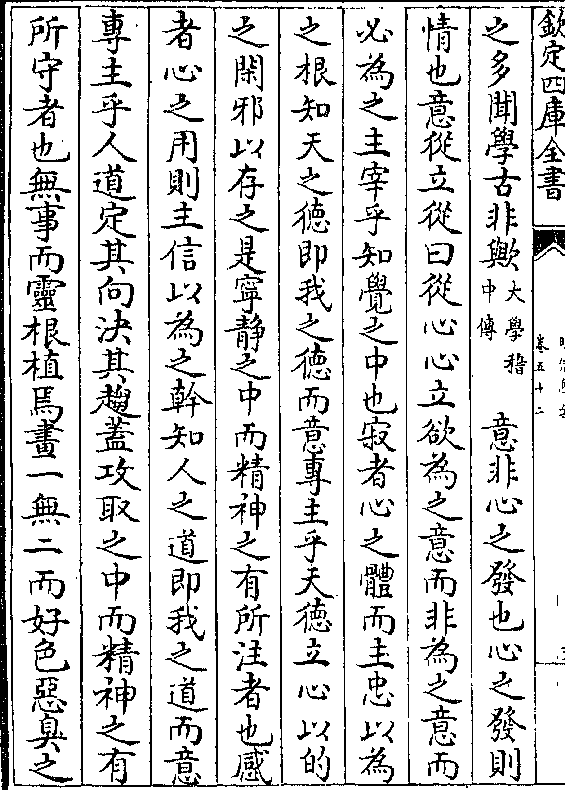 欽定四庫全書
卷五十二
之多聞學古非歟大學稽中傳 意非心之發也心之發則
情也意從立從曰從心心立欲為之意而非為之意而
必為之主宰乎知覺之中也寂者心之體而主忠以為
之根知天之德即我之德而意專主乎天德立心以的
之閑邪以存之是寧靜之中而精神之有所注者也感
者心之用則主信以為之幹知人之道即我之道而意
專主乎人道定其向決其趨蓋攻取之中而精神之有
所守者也無事而靈根植焉畫一無二而好色惡臭之